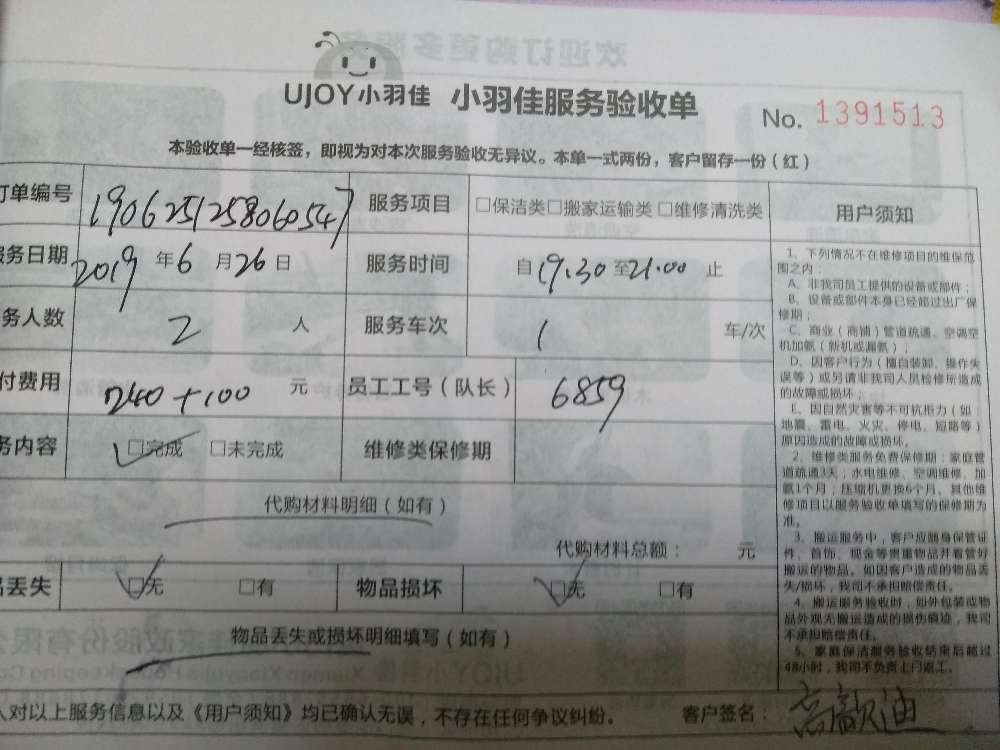 UJOY小羽佳 小羽佳服务验收单 No. 1391513
本验收单一经核签，即视为对本次服务验收无异议。本单一式两份，客户留存一份（红）
订单编号 190625125806547 服务项目 □保洁类□搬家运输类□维修清洗类 用户须知
务日期 2019年6月26日 服务时间 自19.30至21.00止
务人数 2 人 服务车次 1 车/次
付费用 240+100 元 员工工号（队长） 6859
务内容 □完成 □未完成 维修类保修期
代购材料明细（如有）
代购材料总额： 元
丢失 □无 □有 物品损坏 □无 □有
物品丢失或损坏明细填写（如有）
1、下列情况不在维修项目的维保范
围之内：
A、非我司员工提供的设备或部件；
B、设备或部件本身已经超过出厂保
修期；
C、商业（商铺）管道疏通、空调空
机加氨（新机或漏氨）；
D、因客户行为（擅自装卸、操作失
误等）或另请非我司人员检修所造成
的故障或损坏；
E、因自然灾害等不可抗拒力（如
地震、雷电、火灾、停电、短路等）
原因造成的故障或损坏。
2、维修类服务免费保修期：家庭管
道疏通3天；水电维修、空调维修、加
氨1个月；压缩机更换6个月。其他维
修项目以服务验收单填写的保修期为
准。
3、搬运服务中，客户应随身保管证
件、首饰、现金等贵重物品并看管好
搬运的物品。如因客户造成的物品丢
失/损坏，我司不承担赔偿责任。
4、搬运服务验收时，如外包装或物
品外观无搬运造成的损伤痕迹，我司
不承担赔偿责任。
5、家庭保洁服务验收结束后超过
48小时，我司不负责上门返工。
人对以上服务信息以及《用户须知》均已确认无误，不存在任何争议纠纷。 客户签名：